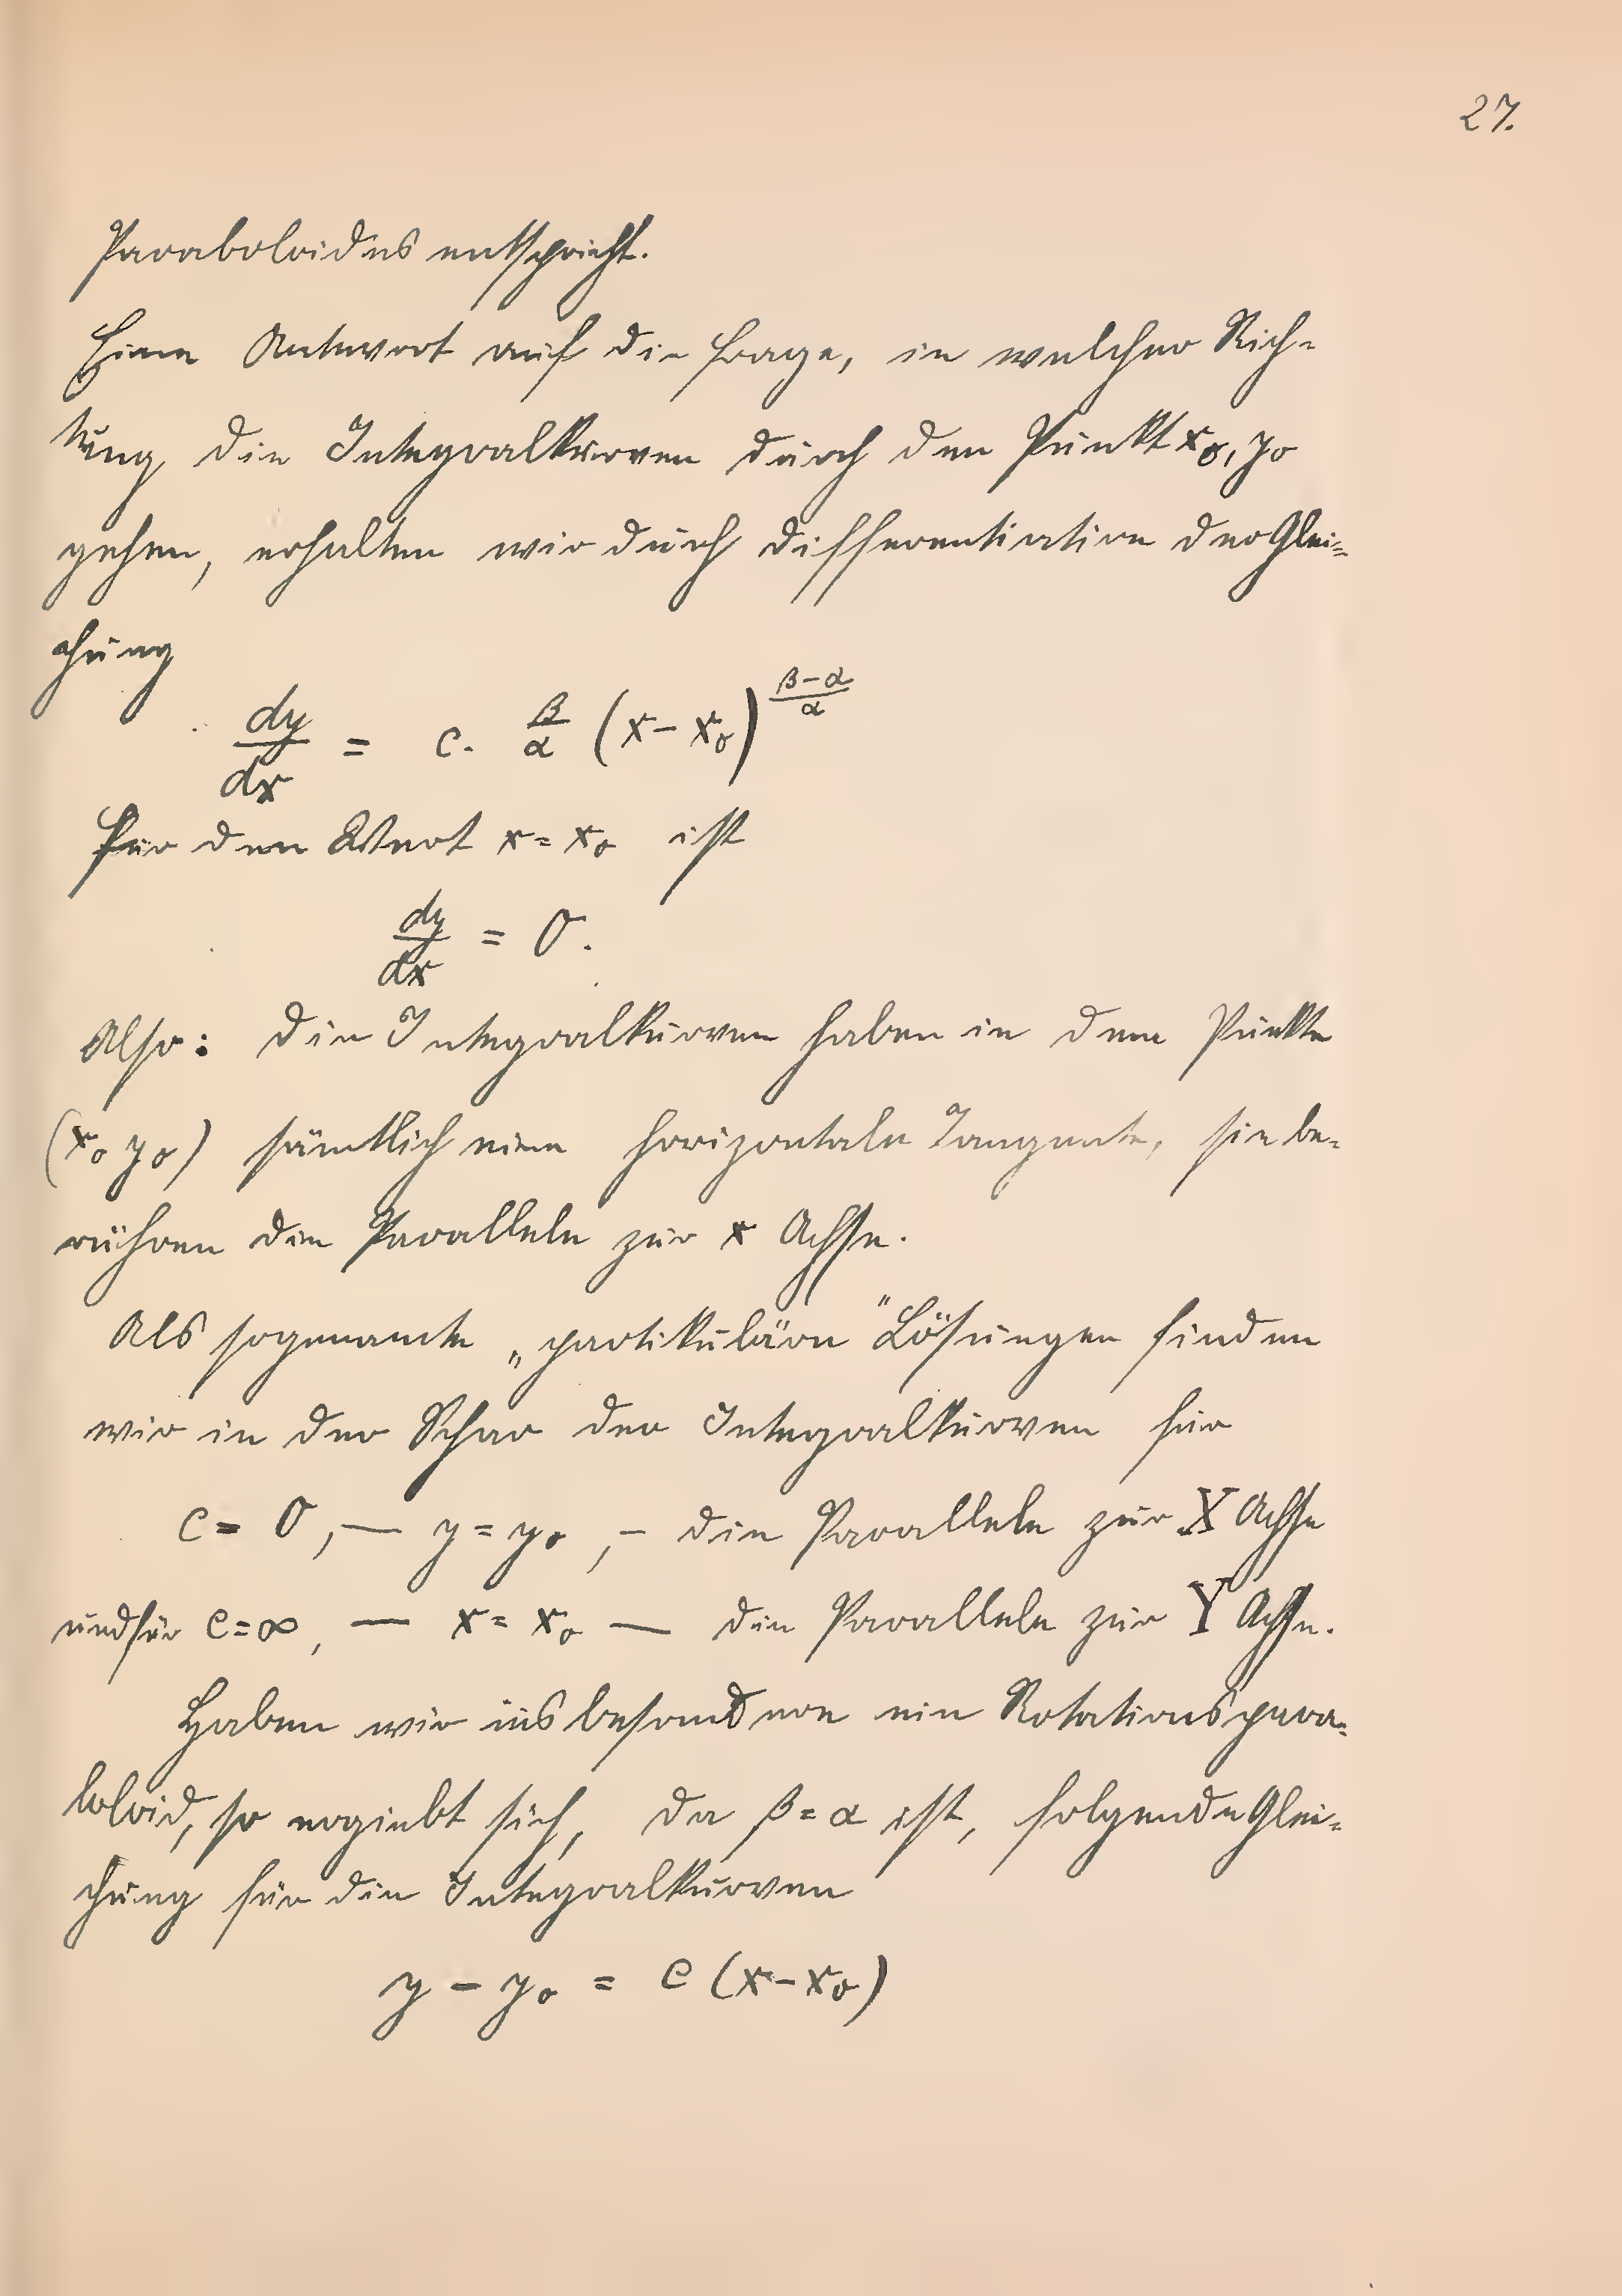 27.
Paraboloides entspricht.
Eine Antwort auf die Frage, in welcher Rich-
tung die Integralkurven durch den Punkt x₀, y₀
gehen, erhalten wir durch Differentiation der Glei-
chung
dy/dx = c · β/α (x - x₀)^((β-α)/α)
Für den Wert x = x₀ ist
dy/dx = 0.
Also: die Integralkurven haben in dem Punkte
(x₀ y₀) sämtlich eine horizontale Tangente, sie be-
rühren die Parallele zur x Achse.
Als sogenannte „partikuläre" Lösungen finden
wir in der Schar der Integralkurven für
c = 0, — y = y₀, – die Parallele zur X Achse
und für c = ∞, — x = x₀ — die Parallele zur Y Achse.
Haben wir insbesondere ein Rotationspara-
boloid, so ergiebt sich, da β = α ist, folgende Glei-
chung für die Integralkurven
y - y₀ = c (x - x₀)